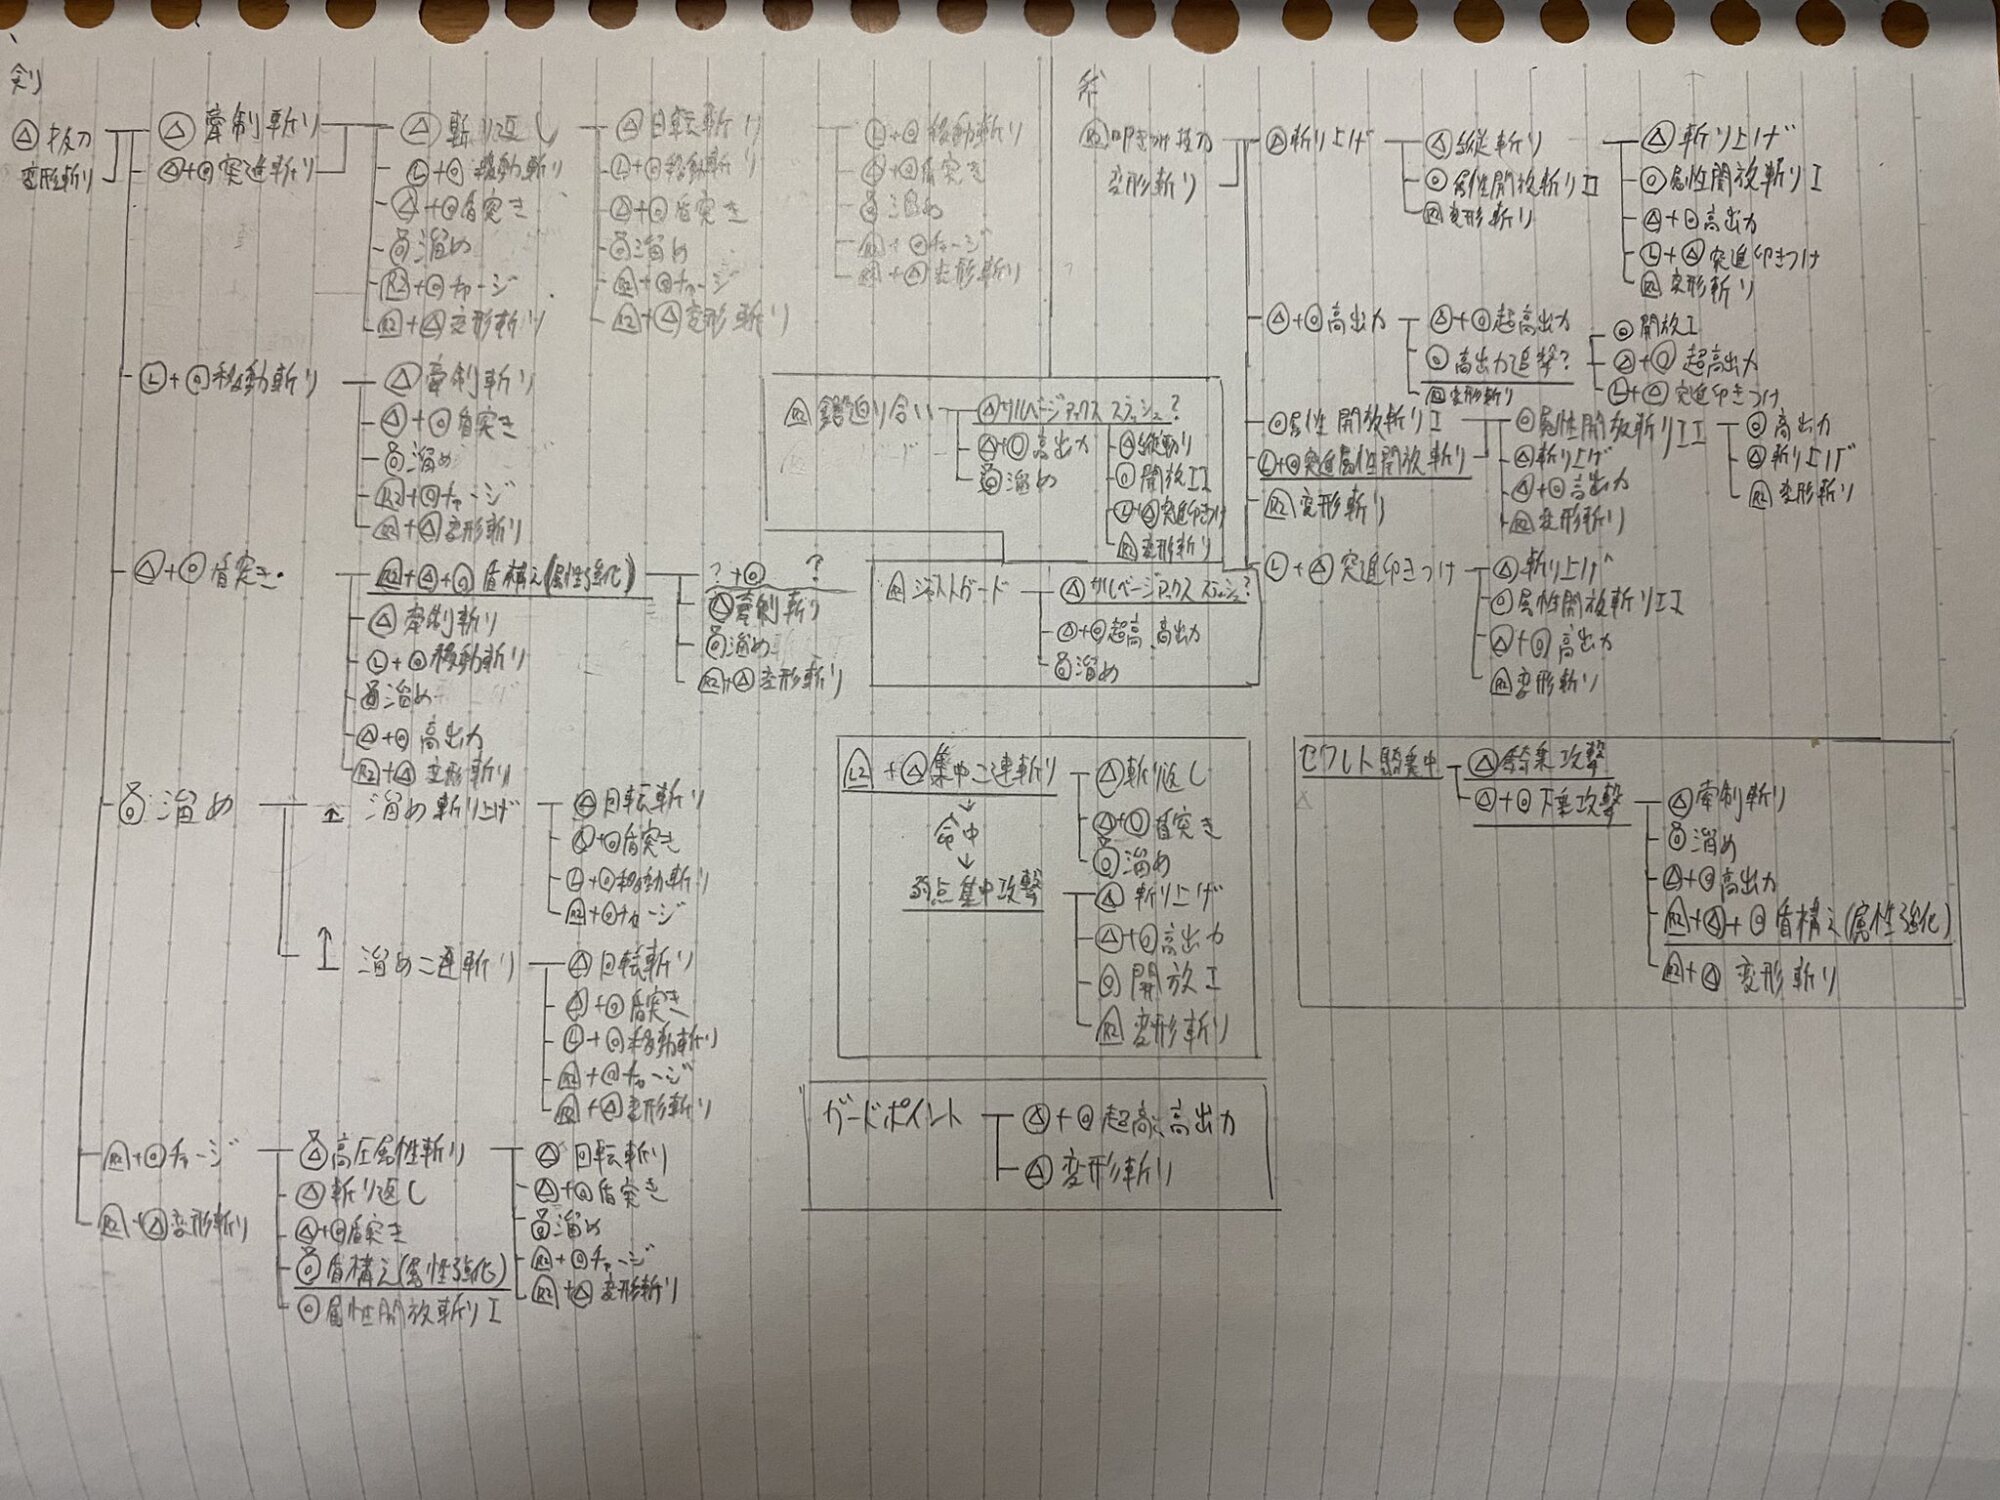 剣
△ 抜刀
変形斬り
△ 牽制斬り
△+○ 突進斬り
△ 斬り返し
L+○ 移動斬り
△+○ 盾突き
○ 溜め
R2+○ チャージ
R2+△ 変形斬り
△ 回転斬り
L+○ 移動斬り
△+○ 盾突き
○ 溜め
R2+○ チャージ
R2+△ 変形斬り
L+○ 移動斬り
△+○ 盾突き
○ 溜め
R2+○ チャージ
R2+△ 変形斬り
L+○ 移動斬り
△ 牽制斬り
△+○ 盾突き
○ 溜め
R2+○ チャージ
R2+△ 変形斬り
△+○ 盾突き
R2+△+○ 盾構え(属性強化)
△ 牽制斬り
L+○ 移動斬り
○ 溜め
△+○ 高出力
R2+△ 変形斬り
?+○ ?
△ 牽制斬り
○ 溜め
R2+△ 変形斬り
○ 溜め
↑ 溜め斬り上げ
△ 回転斬り
△+○ 盾突き
L+○ 移動斬り
R2+○ チャージ
↑ 溜め二連斬り
△ 回転斬り
△+○ 盾突き
L+○ 移動斬り
R2+○ チャージ
R2+△ 変形斬り
R2+○ チャージ
△ 高圧属性斬り
△ 斬り返し
△+○ 盾突き
○ 盾構え(属性強化)
○ 属性開放斬りI
△ 回転斬り
△+○ 盾突き
○ 溜め
R2+○ チャージ
R2+△ 変形斬り
R2+△ 変形斬り
斧
R2 叩きつけ抜刀
変形斬り
△ 斬り上げ
△ 縦斬り
○ 属性開放斬りII
R2 変形斬り
△ 斬り上げ
○ 属性開放斬りI
△+○ 高出力
L+△ 突進叩きつけ
R2 変形斬り
△+○ 高出力
△+○ 超高出力
○ 高出力追撃?
R2 変形斬り
○ 開放I
△+○ 超高出力
L+△ 突進叩きつけ
○ 属性開放斬りI
L+○ 突進属性開放斬り
R2 変形斬り
○ 属性開放斬りII
△ 斬り上げ
△+○ 高出力
R2 変形斬り
○ 高出力
△ 斬り上げ
R2 変形斬り
L+△ 突進叩きつけ
△ 斬り上げ
○ 属性開放斬りII
△+○ 高出力
R2 変形斬り
R2 鍔迫り合い
△ サルベージアックススラッシュ?
△+○ 高出力
○ 溜め
△ 縦斬り
○ 開放II
L+△ 突進叩きつけ
R2 変形斬り
R2 ジャストガード
△ サルベージアックススラッシュ?
△+○ 超高、高出力
○ 溜め
L2+△ 集中二連斬り
↓
命中
↓
弱点集中攻撃
△ 斬り返し
△+○ 盾突き
○ 溜め
△ 斬り上げ
△+○ 高出力
○ 開放I
R2 変形斬り
ガードポイント
△+○ 超高、高出力
△ 変形斬り
セクレト騎乗中
△ 騎乗攻撃
△+○ 下乗攻撃
△ 牽制斬り
○ 溜め
△+○ 高出力
R2+△+○ 盾構え(属性強化)
R2+△ 変形斬り